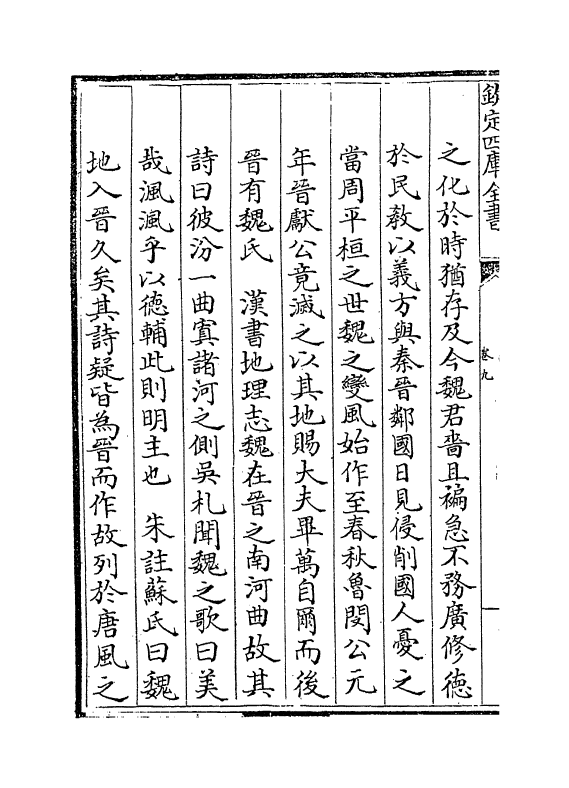 欽定四庫全書
卷九
之化於時猶存及今魏君嗇且褊急不務廣修德
於民教以義方與秦晉鄰國日見侵削國人憂之
當周平桓之世魏之變風始作至春秋魯閔公元
年晉獻公竟滅之以其地賜大夫畢萬自爾而後
晉有魏氏　漢書地理志魏在晉之南河曲故其
詩曰彼汾一曲寘諸河之側吳札聞魏之歌曰美
哉渢渢乎以德輔此則明主也　朱註蘇氏曰魏
地入晉久矣其詩疑皆為晉而作故列於唐風之